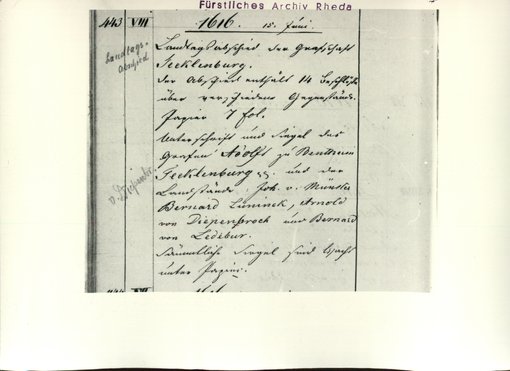 Fürstliches Archiv Rheda
443 VIII 1616. 15. Juni.
Landtags-
Abschied
Landtagsabschied der Grafschaft
Tecklenburg.
Der Abschied enthält 14 Beschlüsse
über verschiedene Gegenstände.
Papier 7 fol.
Unterschrift und Siegel des
Grafen Adolff zu Bentheim
Tecklenburg und der
Landstände: Joh. v. Münster
Bernard Lüninck, Arnold
von Diepenbroch und Bernard
von Ledebur.
Sämmtliche Siegel sind Wachs
unter Papier.